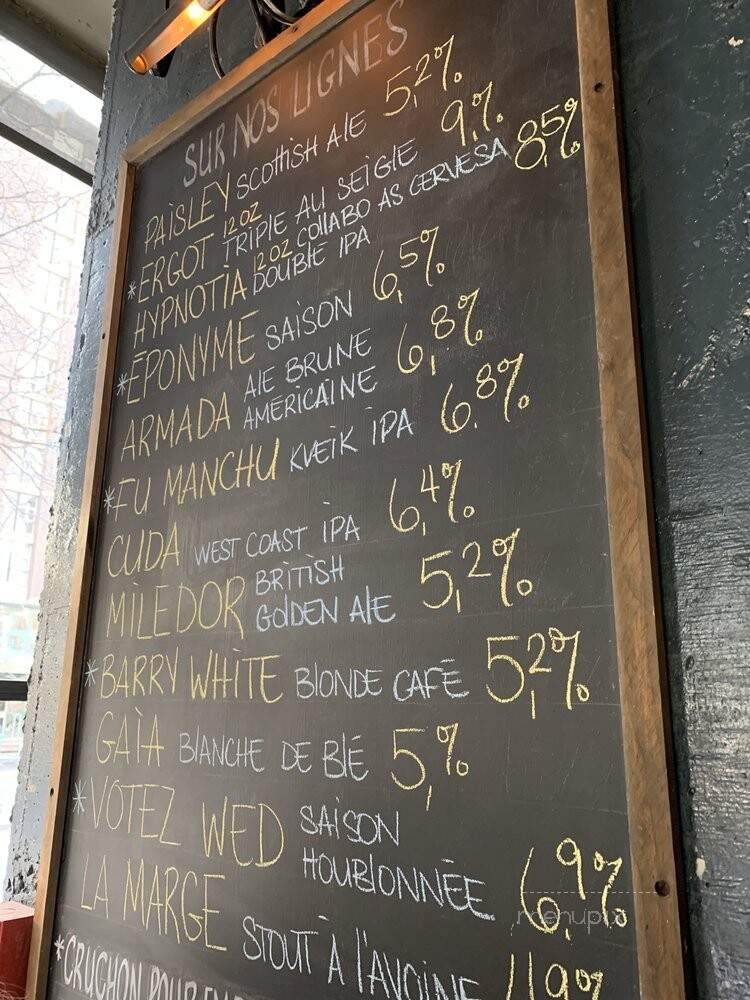 SUR NOS LIGNES
PAISLEY SCOTTISH ALE 5,2%
*ERGOT 12OZ TRIPLE AU SEIGLE 9,%
HYPNOTIA 12OZ COLLABO AS CERVESA DOUBLE IPA 8,5%
*ÉPONYME SAISON 6,5%
ARMADA ALE BRUNE AMÉRICAINE 6,8%
*FU MANCHU KVEIK IPA 6,8%
CUDA WEST COAST IPA 6,4%
MILEDOR BRITISH GOLDEN ALE 5,2%
*BARRY WHITE BLONDE CAFÉ 5,2%
GAÌA BLANCHE DE BLÉ 5,%
*VOTEZ WED SAISON HOUBLONNÉE 6,9%
LA MARGE STOUT À L'AVOINE 4,9%
*CRUCHON POUR
menupix